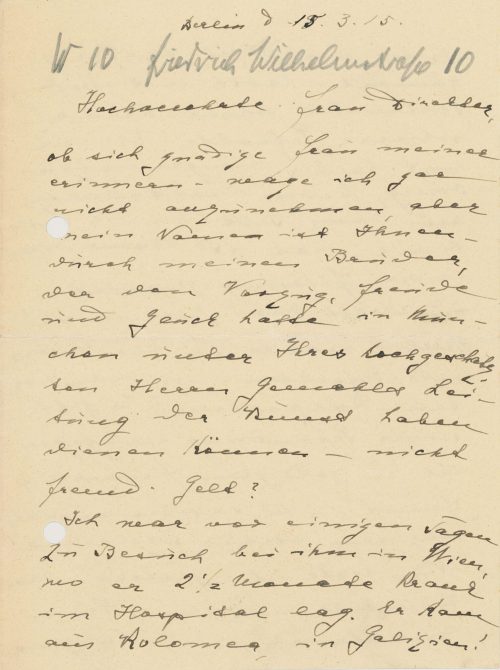 Berlin d 15.3.15.
W 10 Friedrich Wilhelmstraße 10
Hochverehrte Frau Direktor,
ob sich gnädige Frau meiner
erinnern – wage ich gar
nicht anzunehmen, aber
mein Namen ist Ihnen –
durch meinen Bruder,
der den Vorzug, Freude
und Glück hatte in Mün-
chen unter Ihres hochgeschätz-
ten Herrn Gemahls Lei-
tung der Kunst haben
dienen können – nicht
fremd. Gelt?
Ich war vor einigen Tagen
zu Besuch bei ihm in Wien,
wo er 2 1/2 Monate krank
im Hospital lag. Er kam
aus Kolomea, in Galizien!